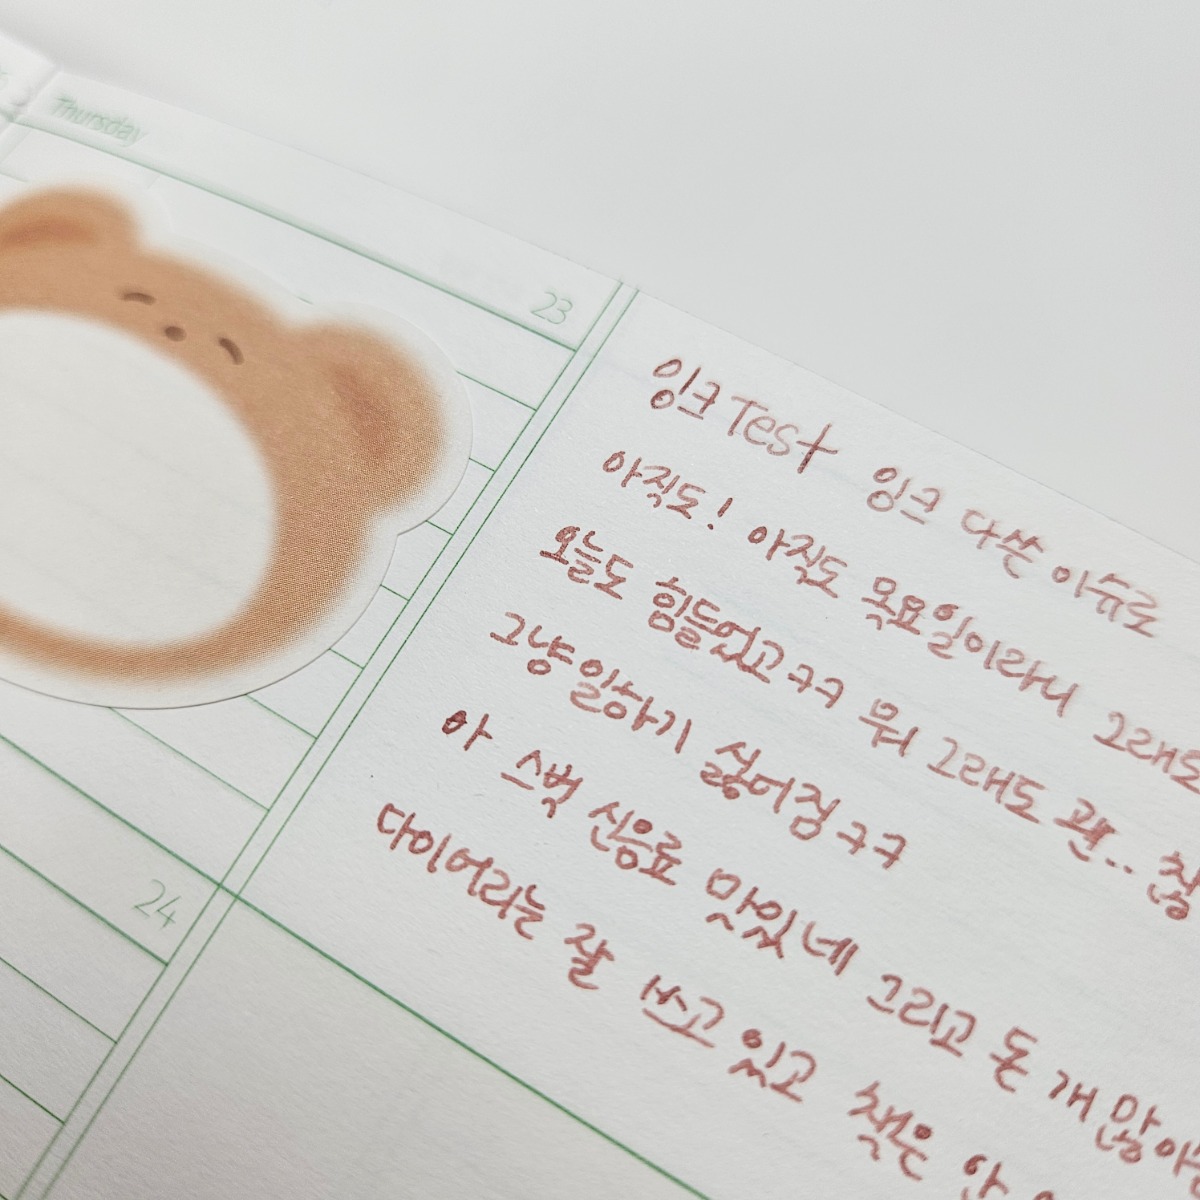 Thursday
23
잉크 Test 잉크 다쓴 이슈로
아직도! 아직도 목요일이라니 그래도
오늘도 힘들었고ㅋㅋ 뭐 그래도 괜..
그냥 일하기 싫어짐 ㅋㅋ
아 스벅 신음료 맛있네 그리고 돈 개많이
다이어리는 잘 쓰고 있고 책은 안
24